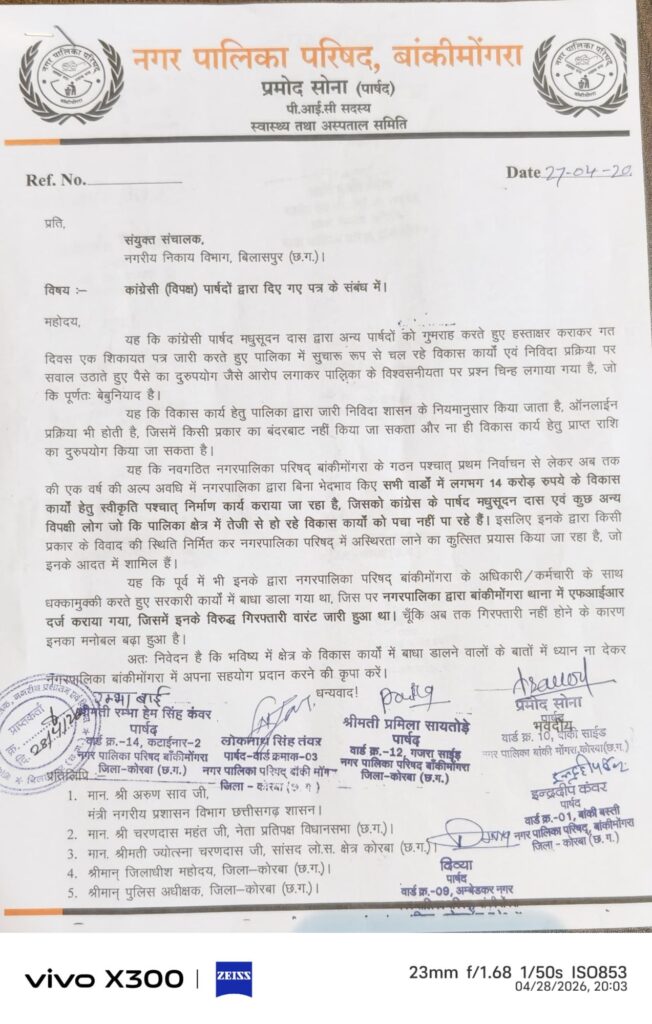 नगर पालिका परिषद, बांकीमोंगरा
प्रमोद सोना (पार्षद)
पी.आई.सी सदस्य
स्वास्थ्य तथा अस्पताल समिति
Ref. No.
Date 27-04-20
प्रति,
संयुक्त संचालक,
नगरीय निकाय विभाग, बिलासपुर (छ.ग.)।
विषय :– कांग्रेसी (विपक्ष) पार्षदों द्वारा दिए गए पत्र के संबंध में।
महोदय,
यह कि कांग्रेसी पार्षद मधुसूदन दास द्वारा अन्य पार्षदों को गुमराह करते हुए हस्ताक्षर कराकर गत
दिवस एक शिकायत पत्र जारी करते हुए पालिका में सुचारू रूप से चल रहे विकास कार्यो एवं निविदा प्रक्रिया पर
सवाल उठाते हुए पैसे का दुरुपयोग जैसे आरोप लगाकर पालिका के विश्वसनीयता पर प्रश्न चिन्ह लगाया गया है, जो
कि पूर्णतः बेबुनियाद है।
यह कि विकास कार्य हेतु पालिका द्वारा जारी निविदा शासन के नियमानुसार किया जाता है, ऑनलाईन
प्रक्रिया भी होती है, जिसमें किसी प्रकार का बंदरबाट नहीं किया जा सकता और ना ही विकास कार्य हेतु प्राप्त राशि
का दुरुपयोग किया जा सकता है।
यह कि नवगठित नगरपालिका परिषद् बांकीमोंगरा के गठन पश्चात् प्रथम निर्वाचन से लेकर अब तक
की एक वर्ष की अल्प अवधि में नगरपालिका द्वारा बिना भेदभाव किए सभी वार्डो में लगभग 14 करोड़ रुपये के विकास
कार्यो हेतु स्वीकृति पश्चात् निर्माण कार्य कराया जा रहा है, जिसको कांग्रेस के पार्षद मधुसूदन दास एवं कुछ अन्य
विपक्षी लोग जो कि पालिका क्षेत्र में तेजी से हो रहे विकास कार्यो को पचा नहीं पा रहे हैं। इसलिए इनके द्वारा किसी
प्रकार के विवाद की स्थिति निर्मित कर नगरपालिका परिषद् में अस्थिरता लाने का कुत्सित प्रयास किया जा रहा है, जो
इनके आदत में शामिल हैं।
यह कि पूर्व में भी इनके द्वारा नगरपालिका परिषद् बांकीमोंगरा के अधिकारी/कर्मचारी के साथ
धक्कामुक्की करते हुए सरकारी कार्यो में बाधा डाला गया था, जिस पर नगरपालिका द्वारा बांकीमोंगरा थाना में एफआईआर
दर्ज कराया गया, जिसमें इनके विरुद्ध गिरफ्तारी वारंट जारी हुआ था। चूँकि अब तक गिरफ्तारी नहीं होने के कारण
इनका मनोबल बढ़ा हुआ है।
अतः निवेदन है कि भविष्य में क्षेत्र के विकास कार्यो में बाधा डालने वालों के बातों में ध्यान ना देकर
नगरपालिका बांकीमोंगरा में अपना सहयोग प्रदान करने की कृपा करें।
धन्यवाद!
रम्भा बाई
श्रीमती रम्भा हेम सिंह कंवर
वार्ड क्र.-14, कटाईनार-2
नगर पालिका परिषद बाँकीमोंगरा
जिला-कोरबा (छ.ग.)
लोकनाथ सिंह तंवर
पार्षद-वार्ड क्रमांक-03
नगर पालिका परिषद
जिला - कोरबा (छ.ग.)
श्रीमती प्रमिला सायतोड़े
पार्षद
वार्ड क्र.-12, गजरा साईड
नगर पालिका परिषद बाँकीमोंगरा
जिला-कोरबा (छ.ग.)
भवदीय
प्रमोद सोना
पार्षद
वार्ड क्र. 10, साईड
नगर पालिका बांकी मोंगरा,कोरबा(छ.ग.)
इन्द्रदीप कंवर
पार्षद
वार्ड क्र.-01, बांकी बस्ती
नगर पालिका परिषद्, बांकीमोंगरा
जिला - कोरबा (छ.ग.)
दिव्या
पार्षद
वार्ड क्र.-09, अम्बेडकर नगर
28/4/20
प्रतिलिपि
1. मान. श्री अरुण साव जी,
मंत्री नगरीय प्रशासन विभाग छत्तीसगढ़ शासन।
2. मान. श्री चरणदास महंत जी, नेता प्रतिपक्ष विधानसभा (छ.ग.)।
3. मान. श्रीमती ज्योत्सना चरणदास जी, सांसद लो.स. क्षेत्र कोरबा (छ.ग.)।
4. श्रीमान् जिलाधीश महोदय, जिला-कोरबा (छ.ग.)।
5. श्रीमान् पुलिस अधीक्षक, जिला-कोरबा (छ.ग.)।
vivo X300 | ZEISS
23mm f/1.68 1/50s ISO853
04/28/2026, 20:03